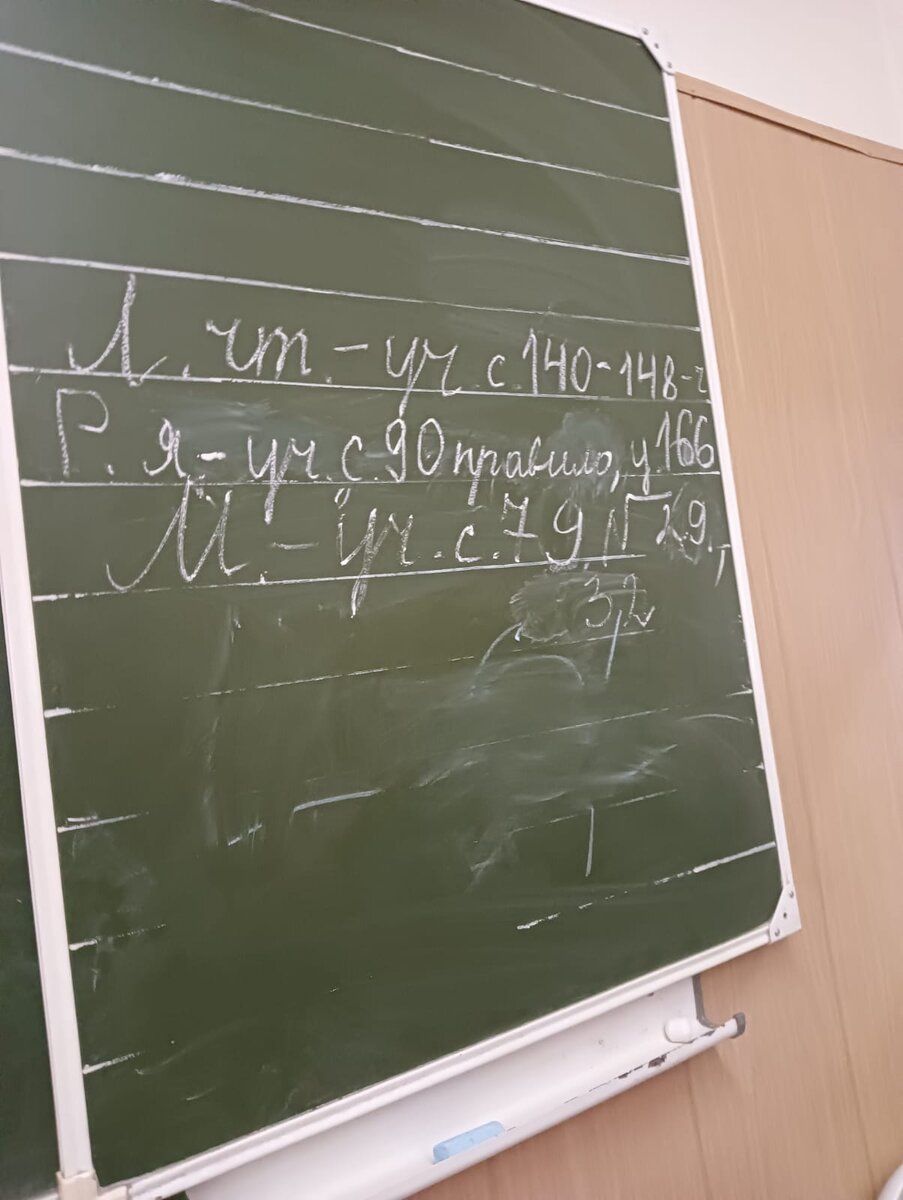 Л. чт. - уч. с. 140-148-ч
Р. я. - уч. с. 90 правило, у. 166
М. - уч. с. 79, № 29,
3, 2